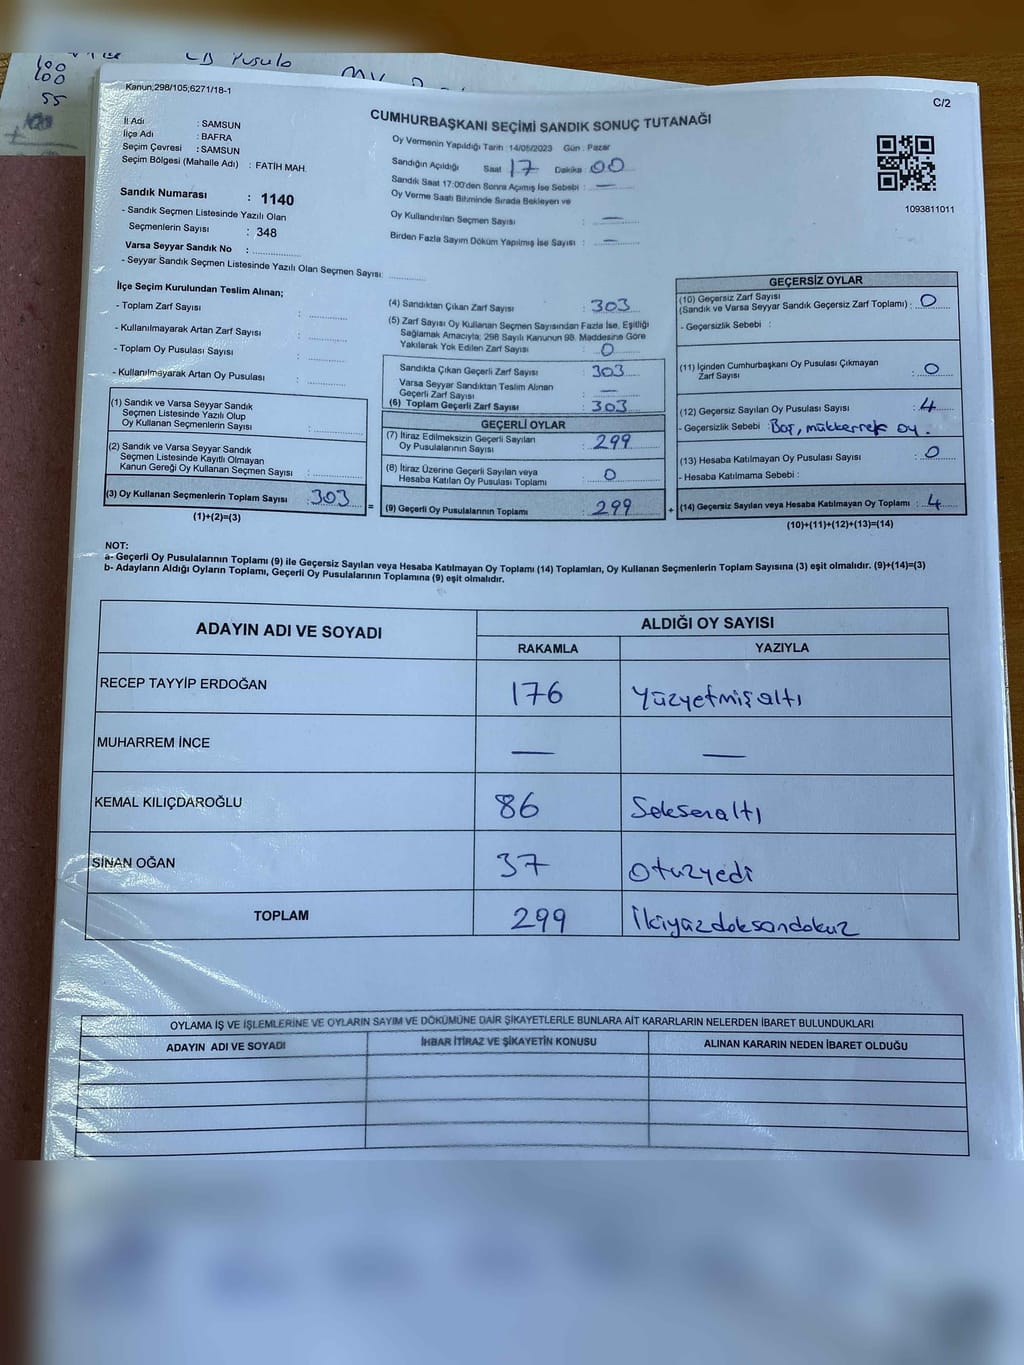 100
100
55
CB Pusula
Kanun;298/105;6271/18-1
C/2
CUMHURBAŞKANI SEÇİMİ SANDIK SONUÇ TUTANAĞI
İl Adı : SAMSUN
İlçe Adı : BAFRA
Seçim Çevresi : SAMSUN
Seçim Bölgesi (Mahalle Adı) : FATİH MAH.
Sandık Numarası : 1140
- Sandık Seçmen Listesinde Yazılı Olan
Seçmenlerin Sayısı : 348
Varsa Seyyar Sandık No :
- Seyyar Sandık Seçmen Listesinde Yazılı Olan Seçmen Sayısı:
Oy Vermenin Yapıldığı Tarih :14/05/2023 Gün : Pazar
Sandığın Açıldığı Saat 17 Dakika 00
Sandık Saat 17:00'den Sonra Açımış İse Sebebi : —
Oy Verme Saati Bitiminde Sırada Bekleyen ve
Oy Kullandırılan Seçmen Sayısı : —
Birden Fazla Sayım Döküm Yapılmış İse Sayısı : —
1093811011
İlçe Seçim Kurulundan Teslim Alınan;
- Toplam Zarf Sayısı :
- Kullanılmayarak Artan Zarf Sayısı :
- Toplam Oy Pusulası Sayısı :
- Kullanılmayarak Artan Oy Pusulası :
(1) Sandık ve Varsa Seyyar Sandık
Seçmen Listesinde Yazılı Olup
Oy Kullanan Seçmenlerin Sayısı :
(2) Sandık ve Varsa Seyyar Sandık
Seçmen Listesinde Kayıtlı Olmayan
Kanun Gereği Oy Kullanan Seçmen Sayısı :
(3) Oy Kullanan Seçmenlerin Toplam Sayısı : 303
(1)+(2)=(3)
(4) Sandıktan Çıkan Zarf Sayısı : 303
(5) Zarf Sayısı Oy Kullanan Seçmen Sayısından Fazla İse, Eşitliği
Sağlamak Amacıyla; 298 Sayılı Kanunun 98. Maddesine Göre
Yakılarak Yok Edilen Zarf Sayısı : 0
Sandıkta Çıkan Geçerli Zarf Sayısı : 303
Varsa Seyyar Sandıktan Teslim Alınan
Geçerli Zarf Sayısı : —
(6) Toplam Geçerli Zarf Sayısı : 303
GEÇERLİ OYLAR
(7) İtiraz Edilmeksizin Geçerli Sayılan
Oy Pusulalarının Sayısı : 299
(8) İtiraz Üzerine Geçerli Sayılan veya
Hesaba Katılan Oy Pusulası Toplamı : 0
= (9) Geçerli Oy Pusulalarının Toplamı : 299
GEÇERSİZ OYLAR
(10) Geçersiz Zarf Sayısı
(Sandık ve Varsa Seyyar Sandık Geçersiz Zarf Toplamı) : 0
- Geçersizlik Sebebi :
(11) İçinden Cumhurbaşkanı Oy Pusulası Çıkmayan
Zarf Sayısı : 0
(12) Geçersiz Sayılan Oy Pusulası Sayısı : 4
- Geçersizlik Sebebi : Boş, mükkerrek oy.
(13) Hesaba Katılmayan Oy Pusulası Sayısı : 0
- Hesaba Katılmama Sebebi :
+ (14) Geçersiz Sayılan veya Hesaba Katılmayan Oy Toplamı : 4
(10)+(11)+(12)+(13)=(14)
NOT:
a- Geçerli Oy Pusulalarının Toplamı (9) ile Geçersiz Sayılan veya Hesaba Katılmayan Oy Toplamı (14) Toplamları, Oy Kullanan Seçmenlerin Toplam Sayısına (3) eşit olmalıdır. (9)+(14)=(3)
b- Adayların Aldığı Oyların Toplamı, Geçerli Oy Pusulalarının Toplamına (9) eşit olmalıdır.
ADAYIN ADI VE SOYADI ALDIĞI OY SAYISI
RAKAMLA YAZIYLA
RECEP TAYYİP ERDOĞAN 176 Yüzyetmişaltı
MUHARREM İNCE — —
KEMAL KILIÇDAROĞLU 86 Seksenaltı
SİNAN OĞAN 37 Otuzyedi
TOPLAM 299 İkiyüzdoksandokuz
OYLAMA İŞ VE İŞLEMLERİNE VE OYLARIN SAYIM VE DÖKÜMÜNE DAİR ŞİKAYETLERLE BUNLARA AİT KARARLARIN NELERDEN İBARET BULUNDUKLARI
ADAYIN ADI VE SOYADI İHBAR İTİRAZ VE ŞİKAYETİN KONUSU ALINAN KARARIN NEDEN İBARET OLDUĞU